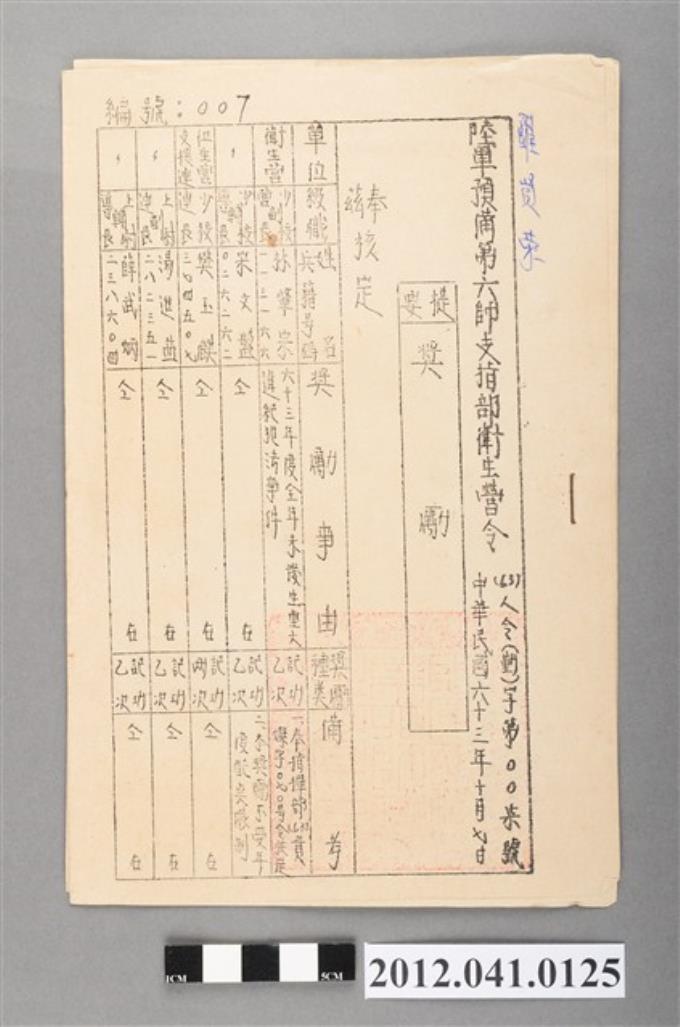 編號：007
羅賢榮
陸軍預備第六師支指部衛生營令
(63)人令(勤)字第00柒號
中華民國六十三年十月七日
提要
獎勵
奉
茲核定
單位
級職
姓名
兵籍號碼
獎勵事由
獎勵種類
備考
衛生營
少校副營長
林肇宗
六十三年度全年未發生重大違紀犯法事件
記功乙次
一、本指揮部(63)貫
二、本獎勵不受年度獎限制
〃
少校輔導長
宋文
〇二六二六二
仝
右
記功乙次
衛生營支援連
少校連長
樊玉麒
三七四五〇七
仝
右
記功兩次
仝
右
〃
上尉副連長
湯進益
二八二三五一
仝
右
記功乙次
仝
右
〃
上尉輔導長
薛武炳
二三八六〇四
仝
右
記功乙次
仝
右
1CM
5CM
2012.041.0125